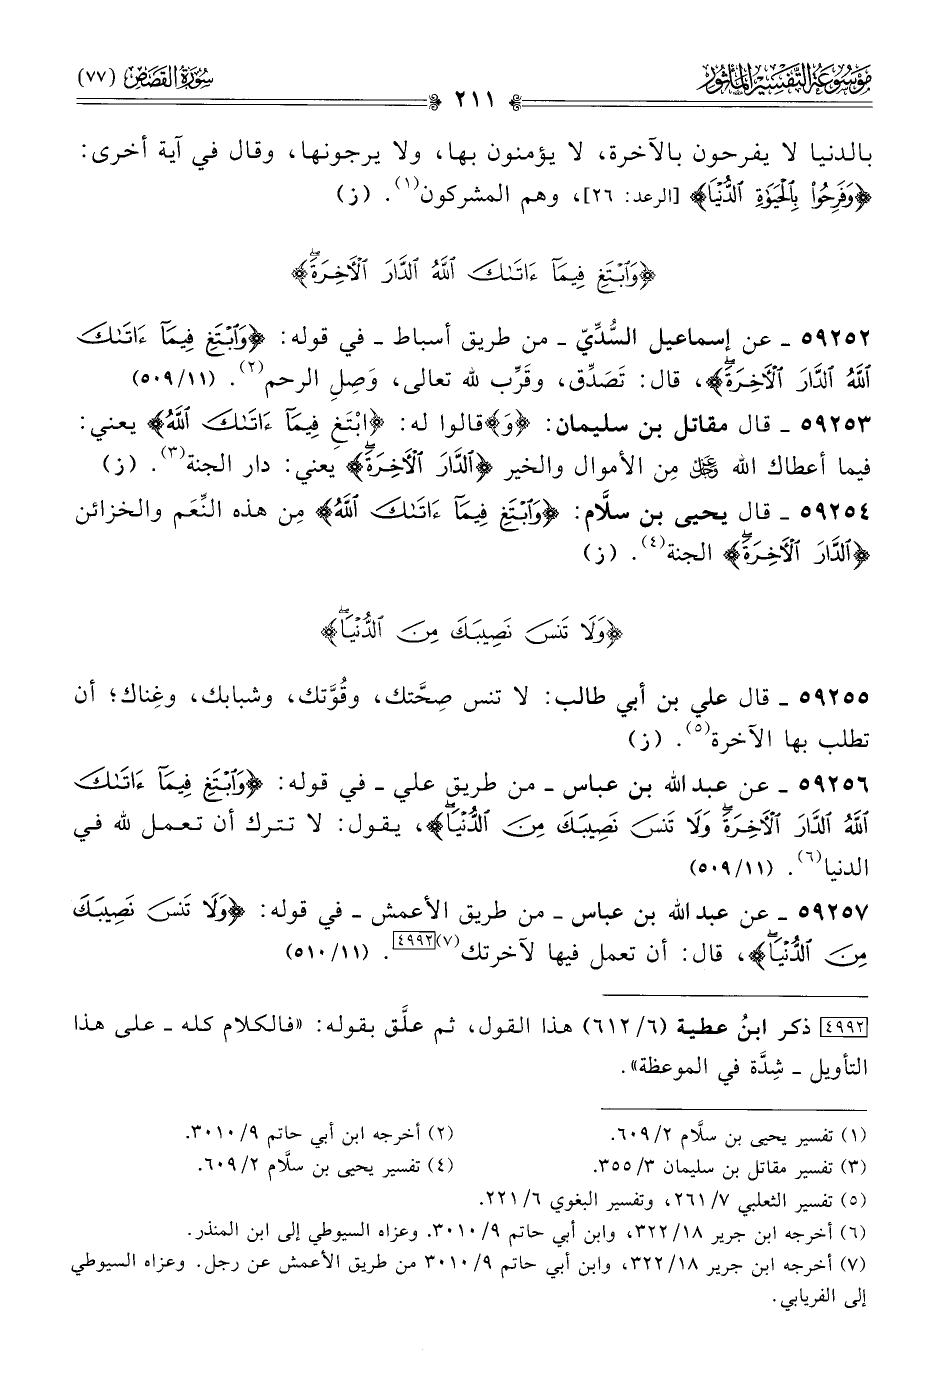 مَوْسُوعَة التَّفْسِير المَأْثُور
سُورَةُ القَصَص (٧٧)
٢١١
بالدنيا لا يفرحون بالآخرة، لا يؤمنون بها، ولا يرجونها، وقال في آية أخرى:
﴿وَفَرِحُوا۟ بِٱلْحَيَوٰةِ ٱلدُّنْيَا﴾ [الرعد: ٢٦]، وهم المشركون(١). (ز)
﴿وَٱبْتَغِ فِيمَآ ءَاتَىٰكَ ٱللَّهُ ٱلدَّارَ ٱلْـَٔاخِرَةَۖ﴾
٥٩٢٥٢ ـ عن إسماعيل السُّدِّيّ ـ من طريق أسباط ـ في قوله: ﴿وَٱبْتَغِ فِيمَآ ءَاتَىٰكَ
ٱللَّهُ ٱلدَّارَ ٱلْـَٔاخِرَةَۖ﴾، قال: تَصَدِّق، وقَرِّب لله تعالى، وَصِلِ الرحم(٢). (٥٠٩/١١)
٥٩٢٥٣ ـ قال مقاتل بن سليمان: ﴿وَ﴾قالوا له: ﴿ٱبْتَغِ فِيمَآ ءَاتَىٰكَ ٱللَّهُ﴾ يعني:
فيما أعطاك الله ﷻ مِن الأموال والخير ﴿ٱلدَّارَ ٱلْـَٔاخِرَةَۖ﴾ يعني: دار الجنة(٣). (ز)
٥٩٢٥٤ ـ قال يحيى بن سلَّام: ﴿وَٱبْتَغِ فِيمَآ ءَاتَىٰكَ ٱللَّهُ﴾ مِن هذه النِّعَم والخزائن
﴿ٱلدَّارَ ٱلْـَٔاخِرَةَۖ﴾ الجنة(٤). (ز)
﴿وَلَا تَنسَ نَصِيبَكَ مِنَ ٱلدُّنْيَاۖ﴾
٥٩٢٥٥ ـ قال علي بن أبي طالب: لا تنس صِحَّتك، وقُوَّتك، وشبابك، وغِناك؛ أن
تطلب بها الآخرة(٥). (ز)
٥٩٢٥٦ ـ عن عبد الله بن عباس ـ من طريق علي ـ في قوله: ﴿وَٱبْتَغِ فِيمَآ ءَاتَىٰكَ
ٱللَّهُ ٱلدَّارَ ٱلْـَٔاخِرَةَۖ وَلَا تَنسَ نَصِيبَكَ مِنَ ٱلدُّنْيَاۖ﴾، يقول: لا تترك أن تعمل لله في
الدنيا(٦). (٥٠٩/١١)
٥٩٢٥٧ ـ عن عبد الله بن عباس ـ من طريق الأعمش ـ في قوله: ﴿وَلَا تَنسَ نَصِيبَكَ
مِنَ ٱلدُّنْيَاۖ﴾، قال: أن تعمل فيها لآخرتك(٧)[٤٩٩٢]. (٥١٠/١١)
[٤٩٩٢] ذكر ابنُ عطية (٦١٢/٦) هذا القول، ثم علَّق بقوله: «فالكلام كله ـ على هذا
التأويل ـ شِدَّة في الموعظة».
(١) تفسير يحيى بن سلَّام ٦٠٩/٢.
(٢) أخرجه ابن أبي حاتم ٣٠١٠/٩.
(٣) تفسير مقاتل بن سليمان ٣٥٥/٣.
(٤) تفسير يحيى بن سلَّام ٦٠٩/٢.
(٥) تفسير الثعلبي ٢٦١/٧، وتفسير البغوي ٢٢١/٦.
(٦) أخرجه ابن جرير ٣٢٢/١٨، وابن أبي حاتم ٣٠١٠/٩. وعزاه السيوطي إلى ابن المنذر.
(٧) أخرجه ابن جرير ٣٢٢/١٨، وابن أبي حاتم ٣٠١٠/٩ من طريق الأعمش عن رجل. وعزاه السيوطي
إلى الفريابي.